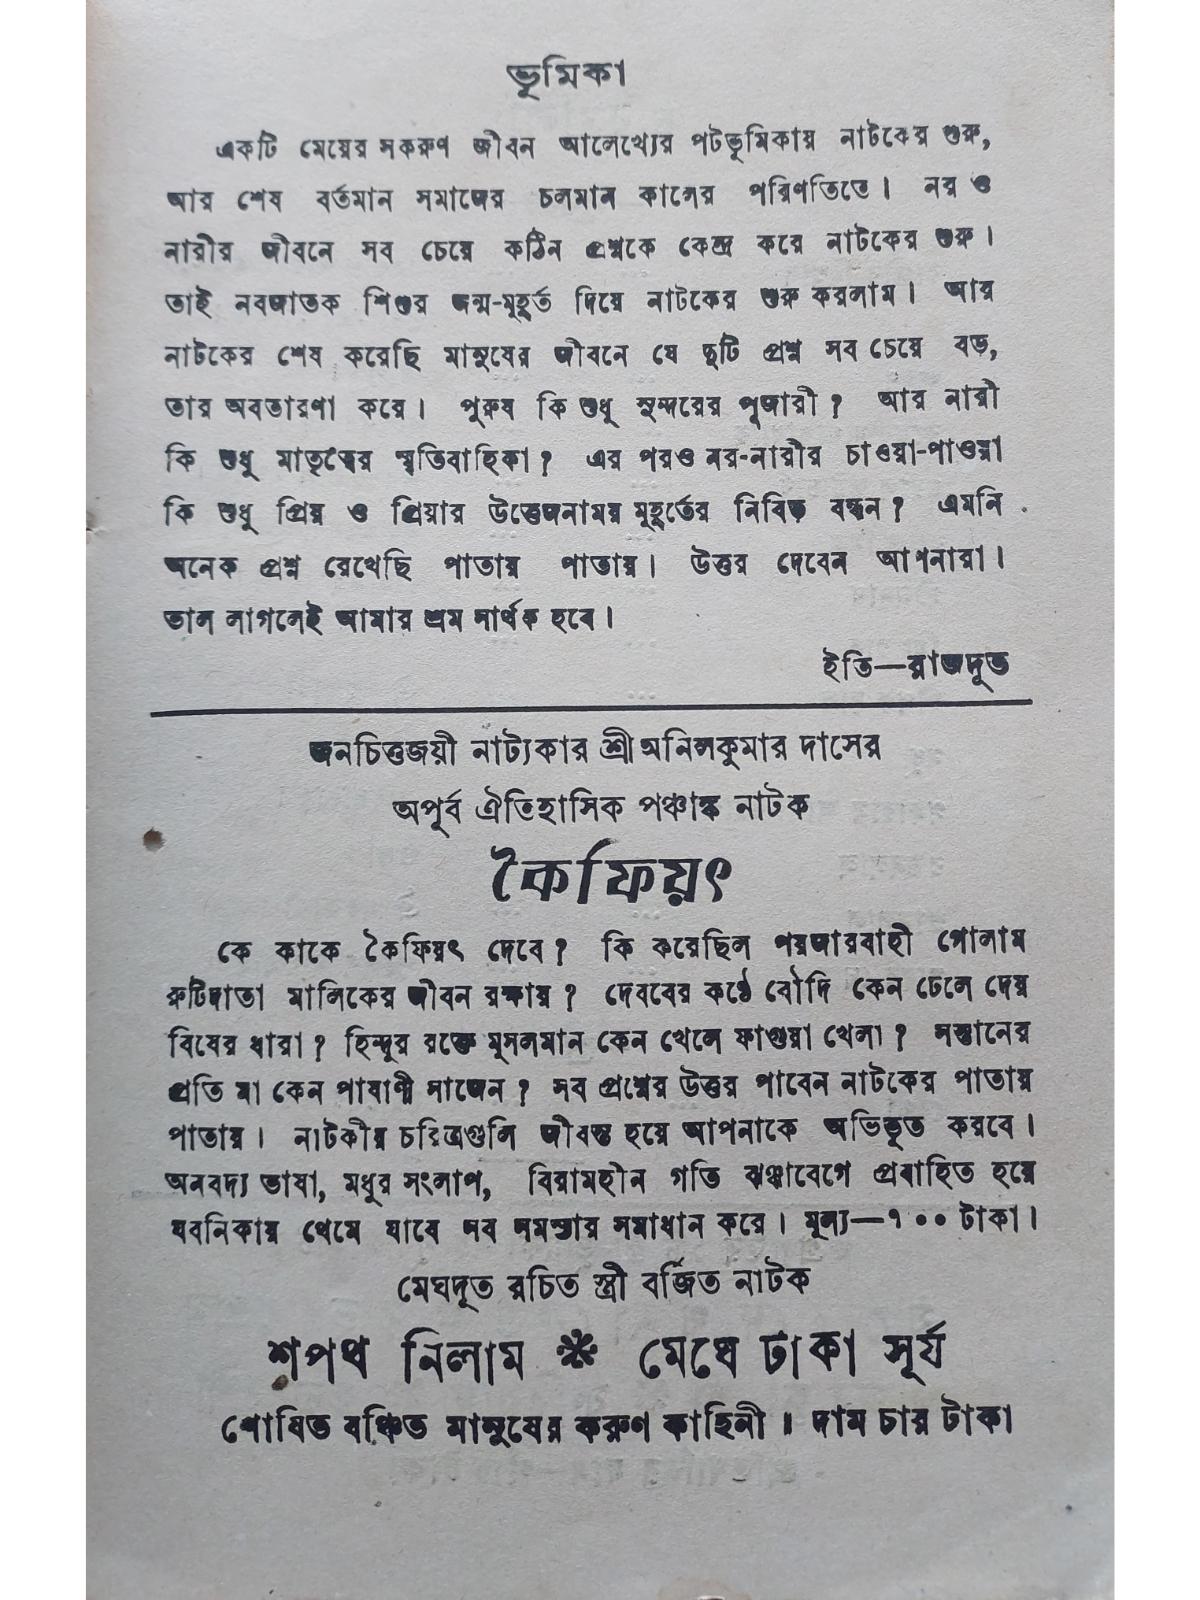 ভূমিকা
একটি মেয়ের সকরুণ জীবন আলেখ্যের পটভূমিকায় নাটকের শুরু,
আর শেষ বর্তমান সমাজের চলমান কালের পরিণতিতে। নর ও
নারীর জীবনে সব চেয়ে কঠিন প্রশ্নকে কেন্দ্র করে নাটকের শুরু।
তাই নবজাতক শিশুর জন্ম-মুহূর্ত দিয়ে নাটকের শুরু করলাম। আর
নাটকের শেষ করেছি মানুষের জীবনে যে দুটি প্রশ্ন সব চেয়ে বড়,
তার অবতারণা করে। পুরুষ কি শুধু সুন্দরের পূজারী? আর নারী
কি শুধু মাতৃত্বের স্মৃতিবাহিকা? এর পরও নর-নারীর চাওয়া-পাওয়া
কি শুধু প্রিয় ও প্রিয়ার উত্তেজনাময় মুহূর্তের নিবিড় বন্ধন? এমনি
অনেক প্রশ্ন রেখেছি পাতায় পাতায়। উত্তর দেবেন আপনারা।
ভাল লাগলেই আমার শ্রম সার্থক হবে।
ইতি—রাজদূত
জনচিত্তজয়ী নাট্যকার শ্রীঅনিলকুমার দাসের
অপূর্ব ঐতিহাসিক পঞ্চাঙ্ক নাটক
কৈফিয়ৎ
কে কাকে কৈফিয়ৎ দেবে? কি করেছিল পয়জারবাহী গোলাম
রুটিদাতা মালিকের জীবন রক্ষায়? দেবরের কণ্ঠে বৌদি কেন ঢেলে দেয়
বিষের ধারা? হিন্দুর রক্তে মুসলমান কেন খেলে ফাগুয়া খেলা? সন্তানের
প্রতি মা কেন পাষাণী সাজেন? সব প্রশ্নের উত্তর পাবেন নাটকের পাতায়
পাতায়। নাটকীয় চরিত্রগুলি জীবন্ত হয়ে আপনাকে অভিভূত করবে।
অনবদ্য ভাষা, মধুর সংলাপ, বিরামহীন গতি ঝঞ্ঝাবেগে প্রবাহিত হয়ে
যবনিকায় থেমে যাবে সব সমস্যার সমাধান করে। মূল্য—৭·০০ টাকা।
মেঘদূত রচিত স্ত্রী বর্জিত নাটক
শপথ নিলাম ✽ মেঘে ঢাকা সূর্য
শোষিত বঞ্চিত মানুষের করুণ কাহিনী। দাম চার টাকা